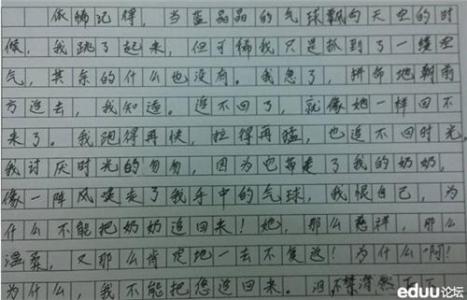 依稀记得，当蓝晶晶的气球飘向天空的时
候，我跳了起来，但可惜我只是抓到了一缕空
气，其余的什么也没有。我急了，拼命地朝前
方追去，我知道。追不回了，就像她一样回不
来了。我跑得再快，拉得再猛，也追不回时光
我讨厌时光的匆匆，因为它带走了我的奶奶，
像一阵风吹走了我手中的气球，我恨自己，为
什么不能把奶奶追回来！她，那么慈祥，那么
温柔，又那么肯定地一去不复返！为什么啊！
为什么，我不能把您追回来。泪不禁潸然而下
eduu论坛